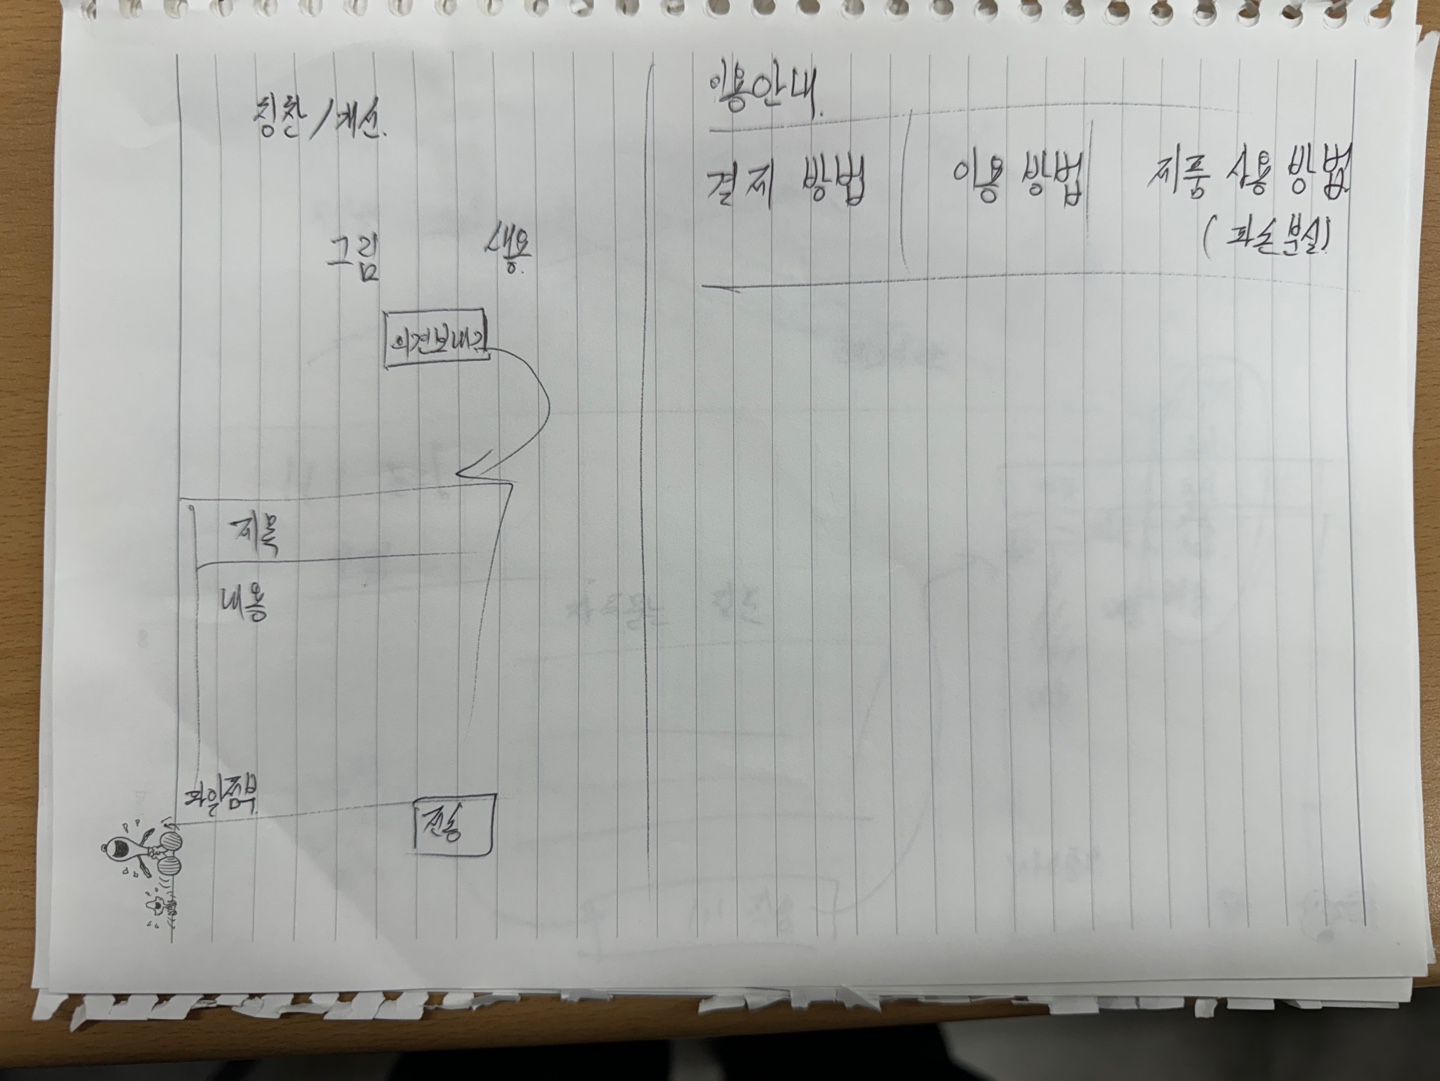 칭찬 / 개선.
그림
의견보내기
제목
내용
파일첨부
전송
이용안내.
결제 방법
이용 방법
제품 사용 방법
(파손분실)